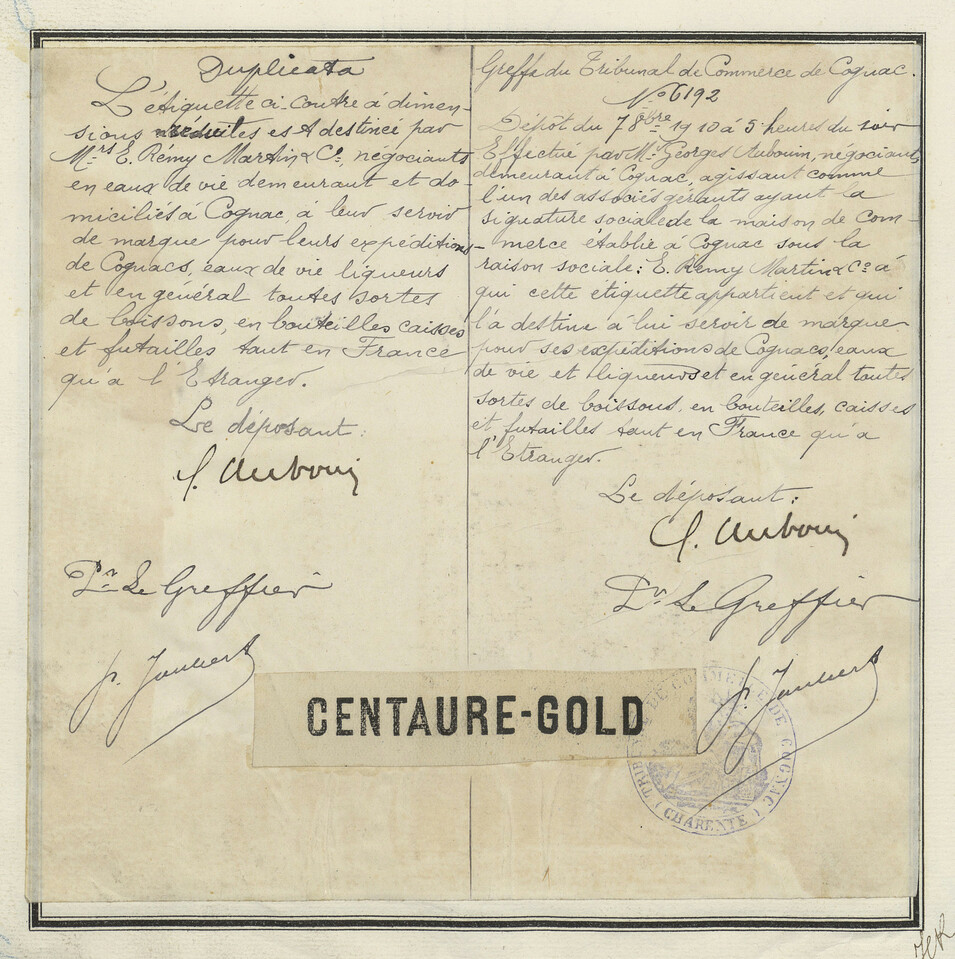 Duplicata
L'étiquette ci-contre à dimen-
sions réduites est destinée par
Mrs E. Rémy Martin & Co, négociants
en eaux de vie demeurant et do-
miciliés à Cognac, à leur servir
de marque pour leurs expéditions
de Cognacs, eaux de vie liqueurs
et en général toutes sortes
de boissons, en bouteilles caisses
et futailles tant en France
qu'à l'Etranger.
Le déposant:
G. Aubouin
Pr Le Greffier
Greffe du Tribunal de Commerce de Cognac.
No 6192
Dépôt du 7 8bre 1910 à 5 heures du soir
Effectué par Mr Georges Aubouin, négociant,
demeurant à Cognac, agissant comme
l'un des associés gérants ayant la
signature sociale de la maison de com-
merce établie à Cognac sous la
raison sociale: E. Remy Martin & Co à
qui cette étiquette appartient et qui
l'a destine à lui servir de marque
pour ses expéditions de Cognacs, eaux
de vie et liqueurs et en général toutes
sortes de boissons, en bouteilles, caisses
et futailles tant en France qu'a
l'Etranger.
Le déposant:
G. Aubouin
Pr Le Greffier
CENTAURE-GOLD
TRIBUNAL DE COMMERCE DE COGNAC
(CHARENTE)